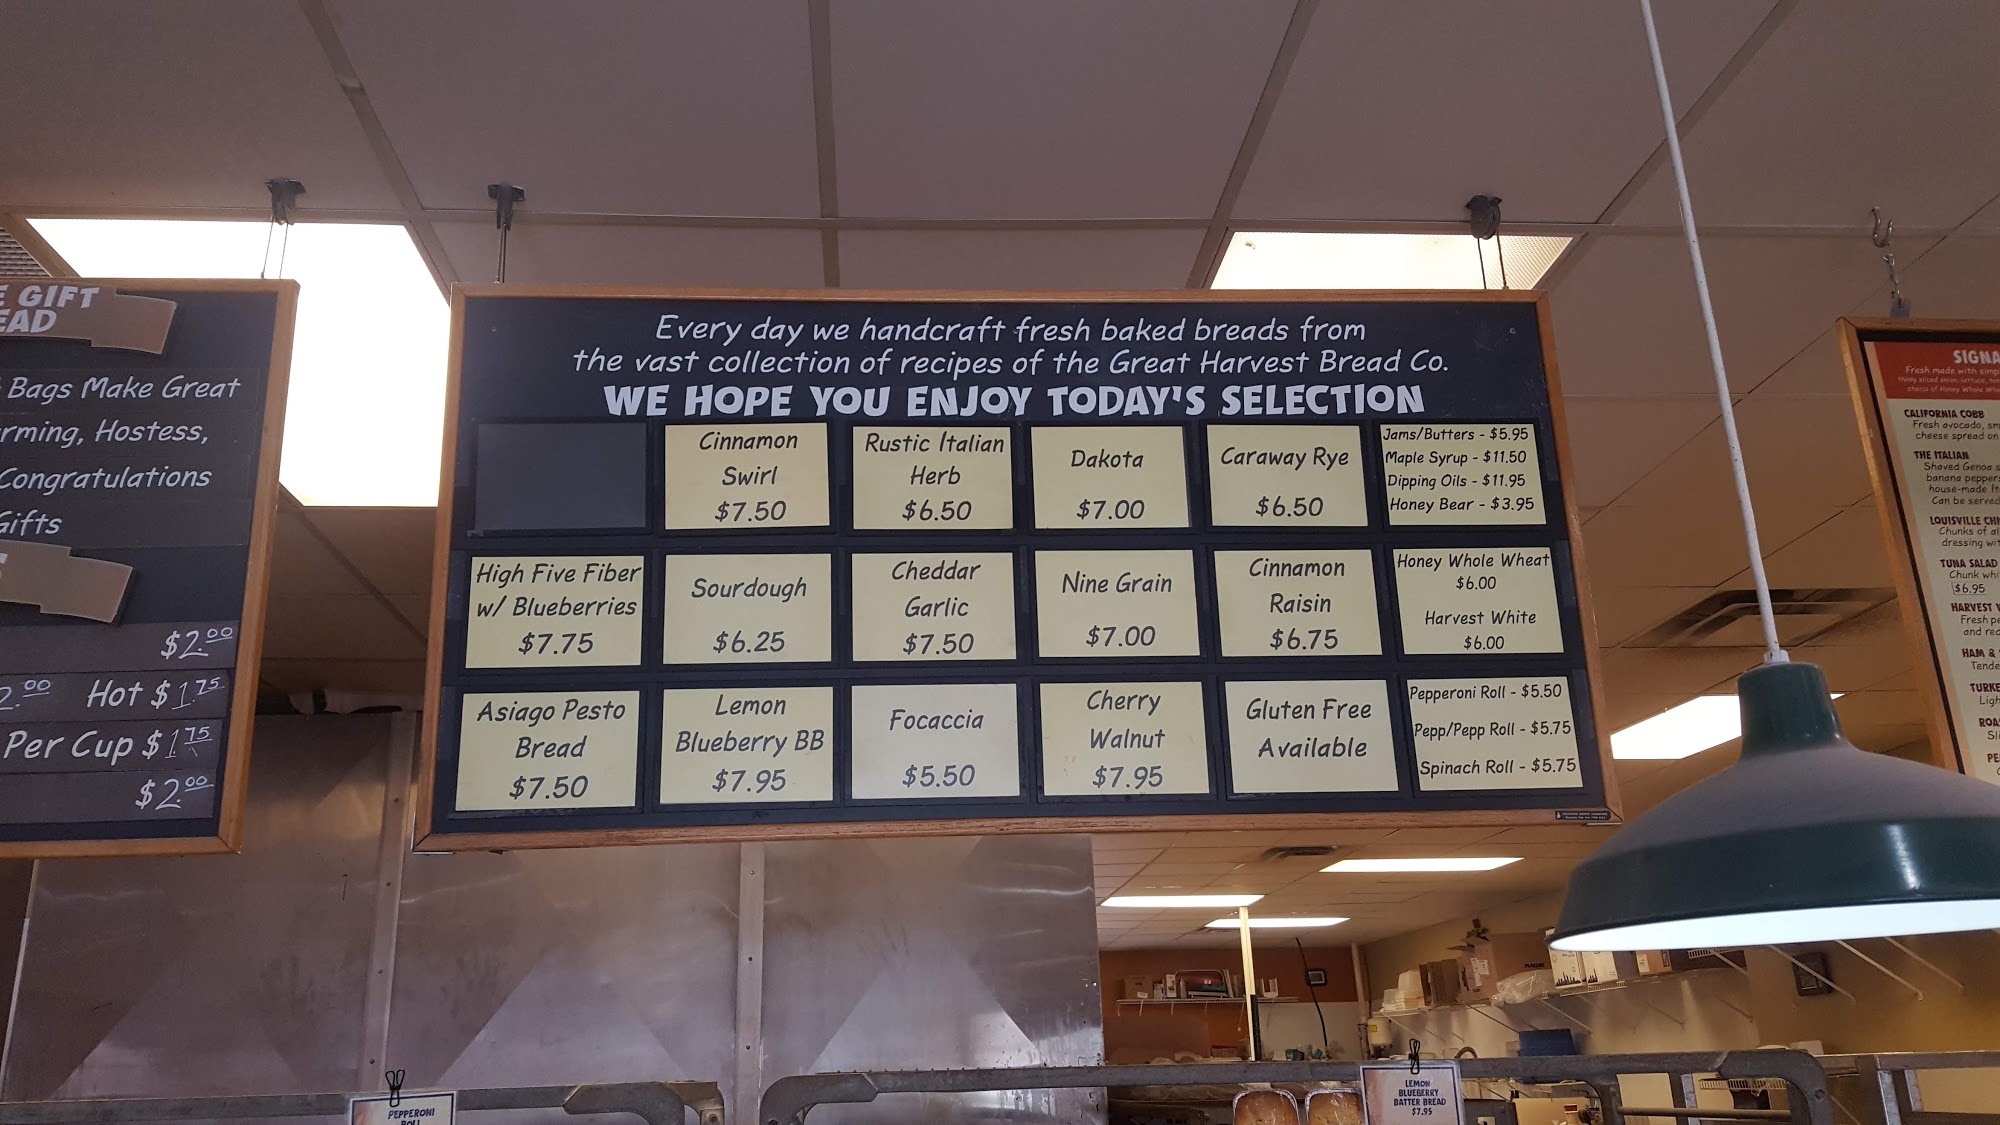 GIFT
Bags Make Great
Hostess,
Congratulations
Gifts
$2.00
Hot $1.75
Per Cup $1.75
$2.00
Every day we handcraft fresh baked breads from
the vast collection of recipes of the Great Harvest Bread Co.
WE HOPE YOU ENJOY TODAY'S SELECTION
Cinnamon
Swirl
$7.50
Rustic Italian
Herb
$6.50
Dakota
$7.00
Caraway Rye
$6.50
Jams/Butters - $5.95
Maple Syrup - $11.50
Dipping Oils - $11.95
Honey Bear - $3.95
High Five Fiber
w/ Blueberries
$7.75
Sourdough
$6.25
Cheddar
Garlic
$7.50
Nine Grain
$7.00
Cinnamon
Raisin
$6.75
Honey Whole Wheat
$6.00
Harvest White
$6.00
Asiago Pesto
Bread
$7.50
Lemon
Blueberry BB
$7.95
Focaccia
$5.50
Cherry
Walnut
$7.95
Gluten Free
Available
Pepperoni Roll - $5.50
Pepp/Pepp Roll - $5.75
Spinach Roll - $5.75
Fresh made with
CALIFORNIA COBB
Fresh avocado,
cheese spread on
THE ITALIAN
Shaved Genoa
banana peppers
house-made
Can be served
LOUISVILLE
Chunks of
dressing
TUNA SALAD
Chunk
$6.95
HARVEST
Fresh
and
HAM &
PEPPERONI
ROLL
LEMON
BLUEBERRY
BATTER BREAD
$7.95